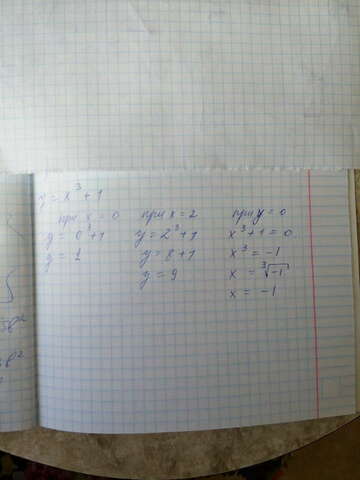 y = x³ + 1
при x = 0
y = 0³+1
y = 1
при x = 2
y = 2³+1
y = 8+1
y = 9
при y = 0
x³+1 = 0
x³ = -1
x = ³√-1
x = -1